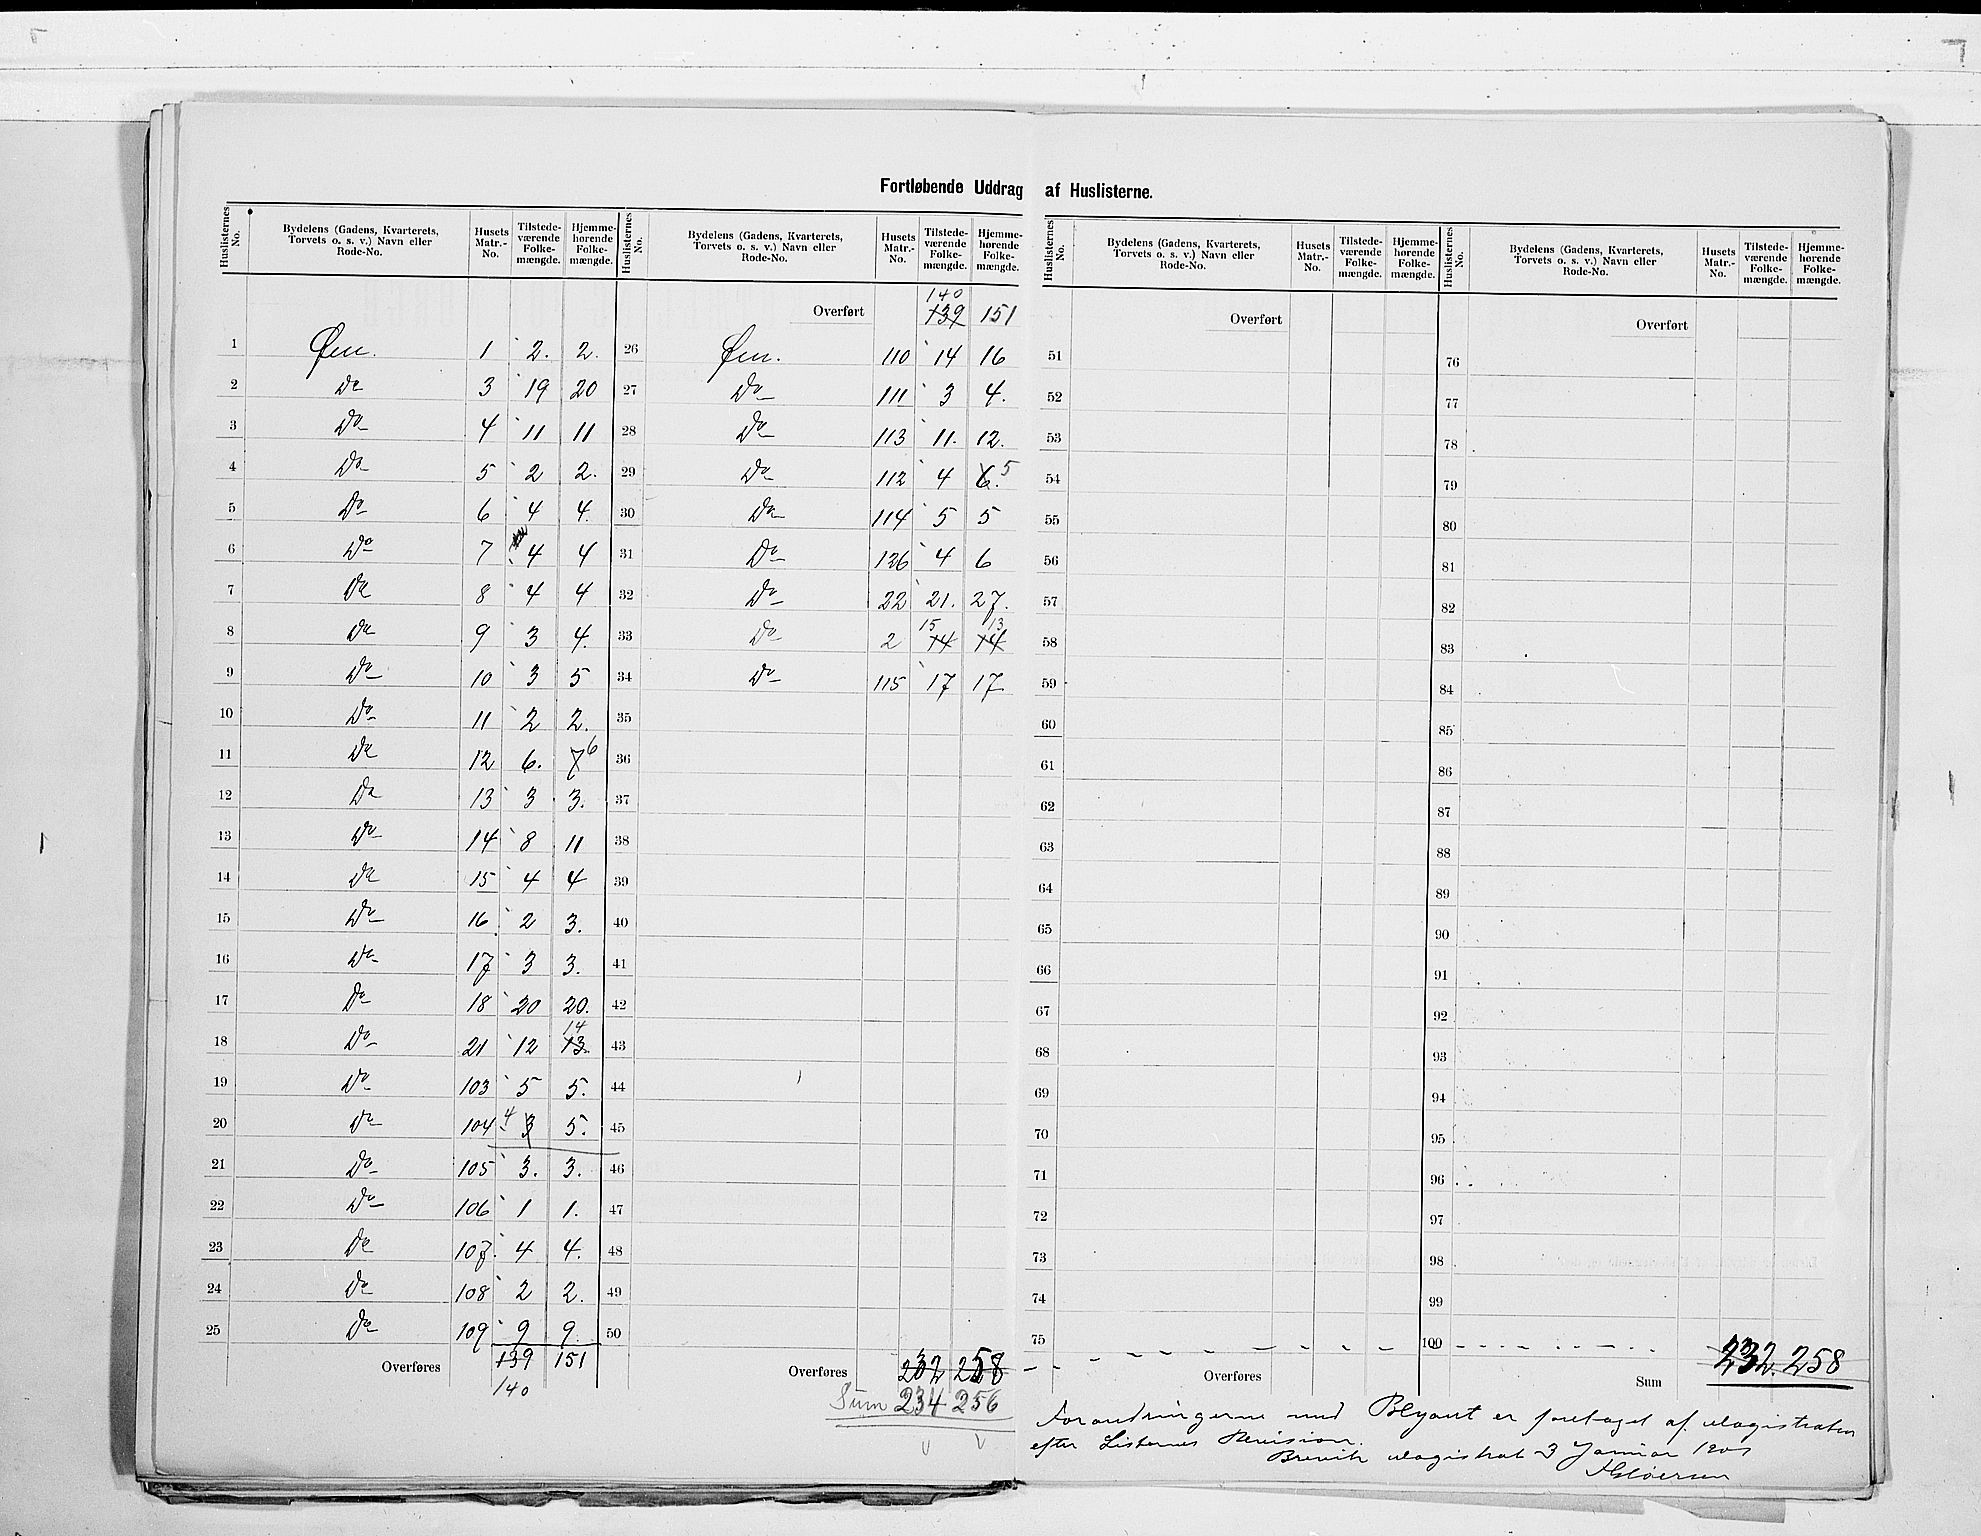 Fortløbende Uddrag af Huslisterne.
Huslisternes No. | Bydelens (Gadens, Kvarterets, Torvets o. s. v.) Navn eller Rode-No. | Husets Matr.-No. | Tilstedeværende Folkemængde. | Hjemmehørende Folkemængde.
1 Øen. 1 2. 2.
2 Do 3 19 20
3 Do 4 11 11
4 Do 5 2 2.
5 Do 6 4 4.
6 Do 7 4 4
7 Do 8 4 4
8 Do 9 3 4.
9 Do 10 3 5
10 Do 11 2 2.
11 Do 12 6. 7 6
12 Do 13 3 3.
13 Do 14 8 11
14 Do 15 4 4
15 Do 16 2 3.
16 Do 17 3 3.
17 Do 18 20 20.
18 Do 21 12 13. 14
19 Do 103 5 5.
20 Do 104 4 3 5.
21 Do 105 3. 3.
22 Do 106 1 1.
23 Do 107. 4 4.
24 Do 108 2 2.
25 Do 109 9 9.
Overføres 139 151
140
Huslisternes No. | Bydelens (Gadens, Kvarterets, Torvets o. s. v.) Navn eller Rode-No. | Husets Matr.-No. | Tilstedeværende Folkemængde. | Hjemmehørende Folkemængde.
140
Overført 139 151
26 Øen. 110 14 16
27 Do 111 3 4.
28 Do 113 11. 12.
29 Do 112 4 6. 5
30 Do 114 5 5
31 Do 126 4 6
32 Do 22 21. 27.
33 Do 2 15 14 13 14
34 Do 115 17 17
35
36
37
38
39
40
41
42
43
44
45
46
47
48
49
50
Overføres 232 258
Sum 234 256
Huslisternes No. | Bydelens (Gadens, Kvarterets, Torvets o. s. v.) Navn eller Rode-No. | Husets Matr.-No. | Tilstedeværende Folkemængde. | Hjemmehørende Folkemængde.
Overført
51
52
53
54
55
56
57
58
59
60
61
62
63
64
65
66
67
68
69
70
71
72
73
74
75
Overføres
Huslisternes No. | Bydelens (Gadens, Kvarterets, Torvets o. s. v.) Navn eller Rode-No. | Husets Matr.-No. | Tilstedeværende Folkemængde. | Hjemmehørende Folkemængde.
Overført
76
77
78
79
80
81
82
83
84
85
86
87
88
89
90
91
92
93
94
95
96
97
98
99
100
Sum 232. 258
Forandringerne med Blyant er foretaget af Magistraten
efter Listernes Revision.
Brevik Magistrat 3 Januar 1901